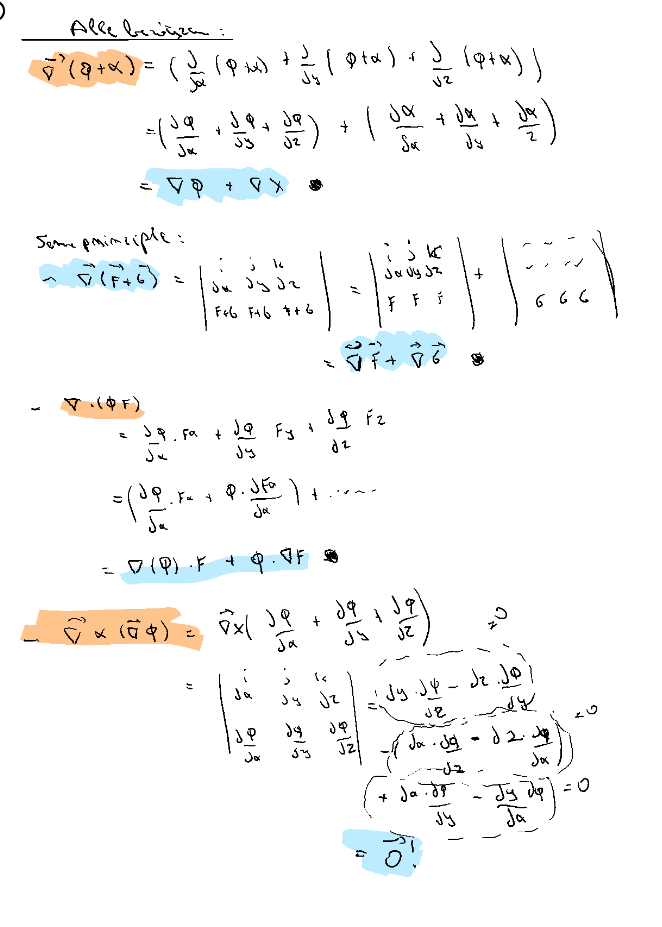 Alle bewijzen :
∇⃗ (φ+α) = ( ∂/∂x (φ+α) + ∂/∂y (φ+α) + ∂/∂z (φ+α) )
= ( ∂φ/∂x + ∂φ/∂y + ∂φ/∂z ) + ( ∂α/∂x + ∂α/∂y + ∂α/∂z )
= ∇φ + ∇X
Same principle :
~ ∇⃗ (F⃗+G⃗) = | i j k ; ∂x ∂y ∂z ; F+G F+G F+G | = | i j k ; ∂x ∂y ∂z ; F F F | + | ~ ~ ~ ; ~ ~ ~ ; G G G |
= ∇⃗ F⃗ + ∇⃗ G⃗
– ∇ · (φF)
= ∂φ/∂x · Fx + ∂φ/∂y Fy + ∂φ/∂z Fz
= ( ∂φ/∂x · Fx + φ · ∂Fx/∂x ) + .....
= ∇(φ) · F + φ · ∇F
– ∇⃗ × (∇⃗ φ) = ∇⃗ × ( ∂φ/∂x + ∂φ/∂y + ∂φ/∂z ) = 0
= | i j k ; ∂x ∂y ∂z ; ∂φ/∂x ∂φ/∂y ∂φ/∂z | = ( ∂y · ∂φ/∂z – ∂z · ∂φ/∂y )
– ( ∂x · ∂φ/∂z – ∂z · ∂φ/∂x ) = 0
( + ∂x · ∂φ/∂y – ∂y ∂φ/∂x ) = 0
= 0⃗ !